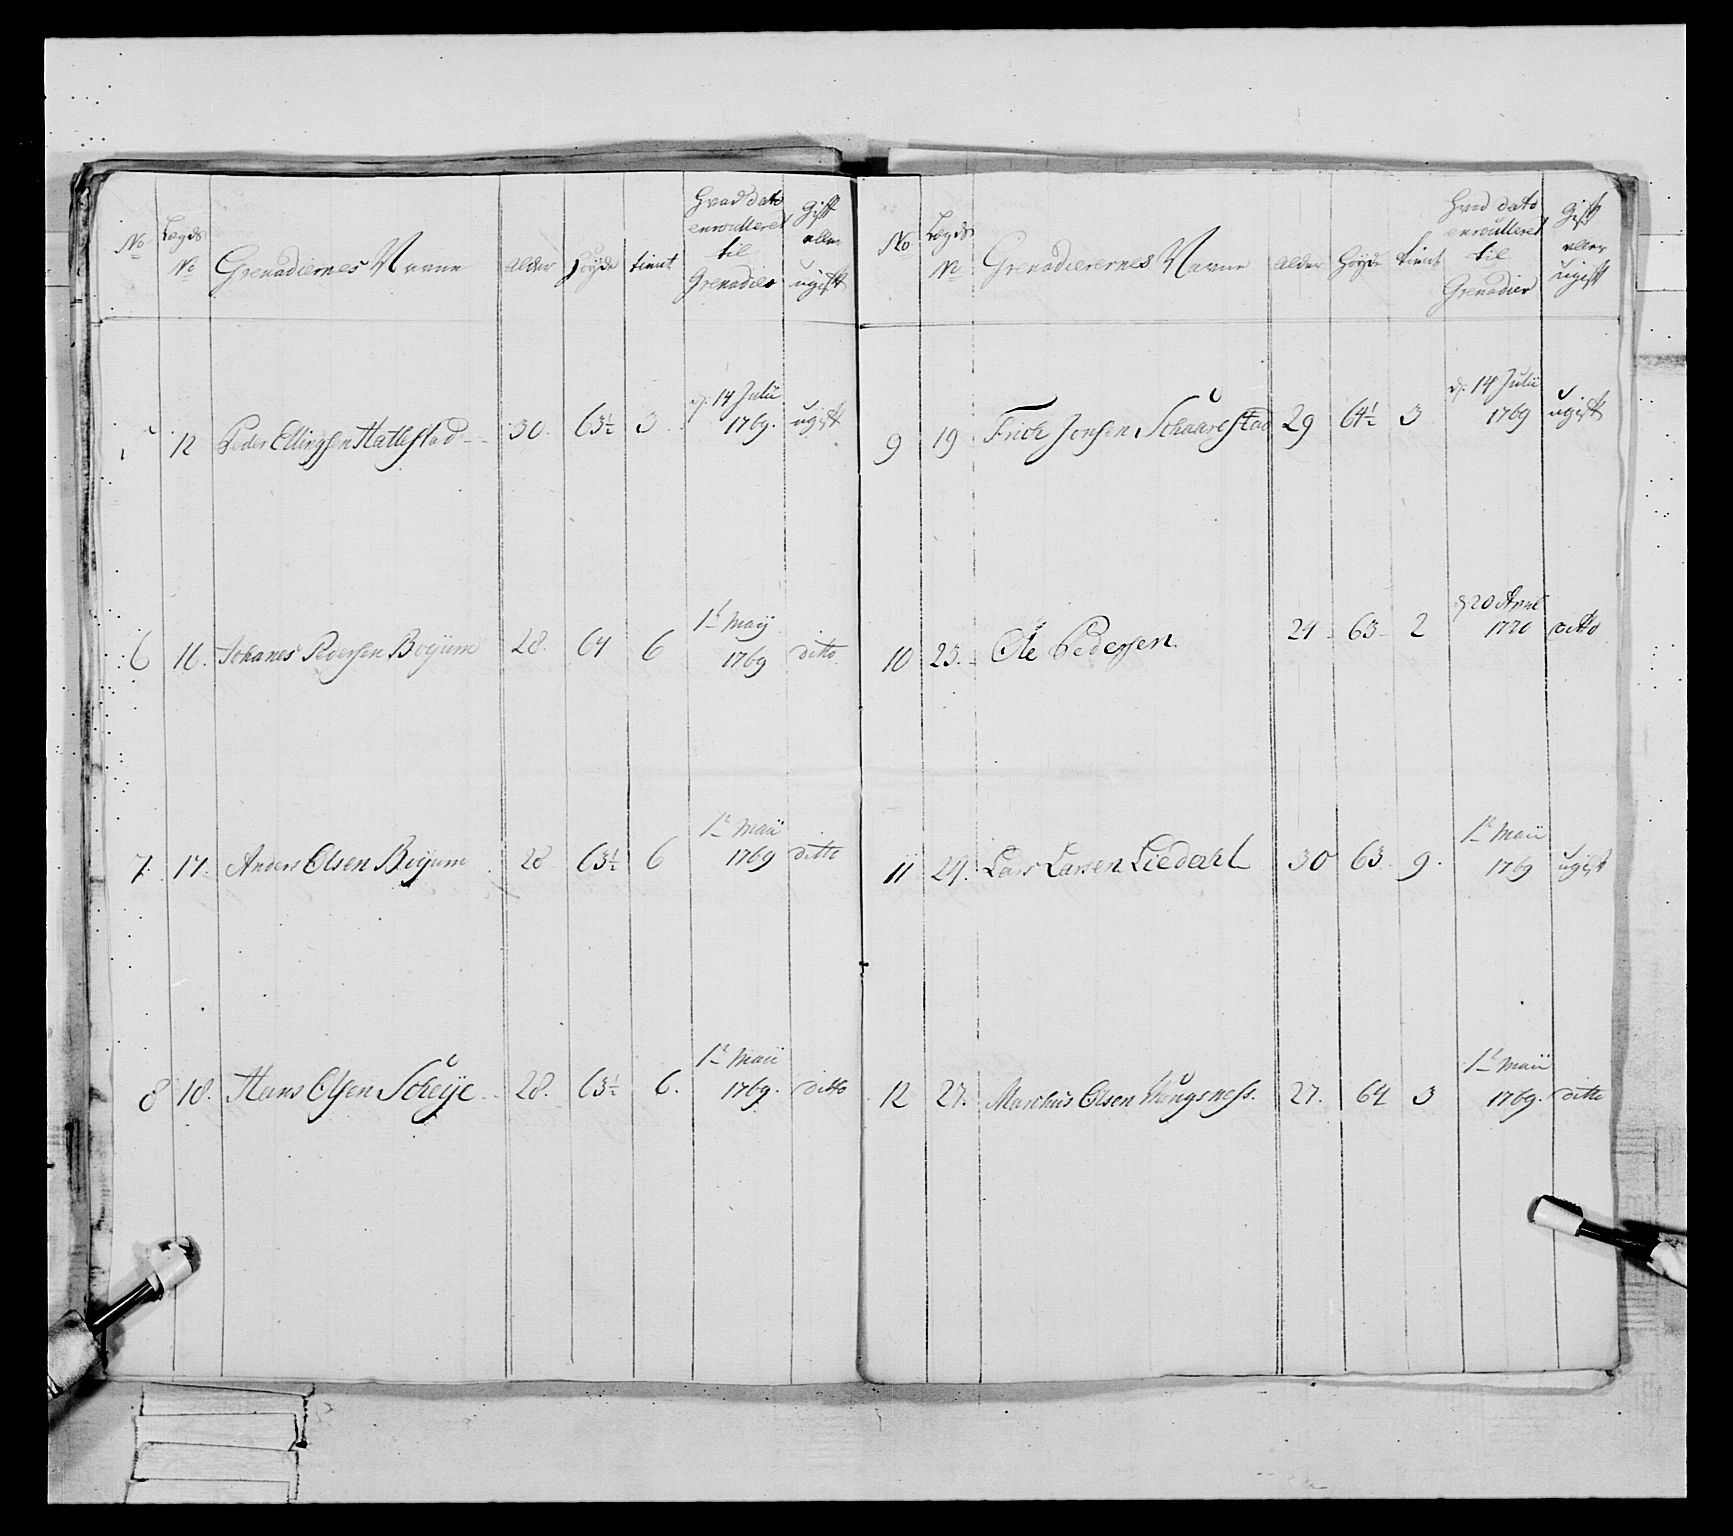 No | Lægds No | Grenadiernes Navne | Alder | Høyde | tient | Hvad dato enroulleret til Grenadier | Gift eller ugift
5 | 12 | Peder Ellingsen Hatlestad | 30. | 63½ | 3 | d. 14 Julii 1769. | ugift
6 | 16. | Johanes Pedersen Bøyum | 28. | 64 | 6 | 1t Maij 1769 | ditto
7. | 17. | Anders Olsen Bøyum | 28 | 63½ | 6 | 1t Maii 1769 | ditto
8 | 18. | Hans Olsen Scheije | 28. | 63½ | 6. | 1t Maii 1769. | ditto
No | Lægds No | Grenadierernes Navne | Alder | Høyde | tient | Hvad dato enroulleret til Grenadier | Gift eller ugift
9 | 19 | Frich Jonsen Schaarestad | 29 | 64½ | 3 | d. 14 Julii 1769 | ugift
10 | 23. | Ole Pedersen | 24 | 63 | 2 | d. 20 April 1770 | ditto
11 | 24. | Lars Larsen Liedahl | 30 | 63 | 9. | 1t Maii 1769 | ugift
12 | 27. | Marchus Olsen | 27. | 64 | 3 | 1t Maii 1769. | ditto